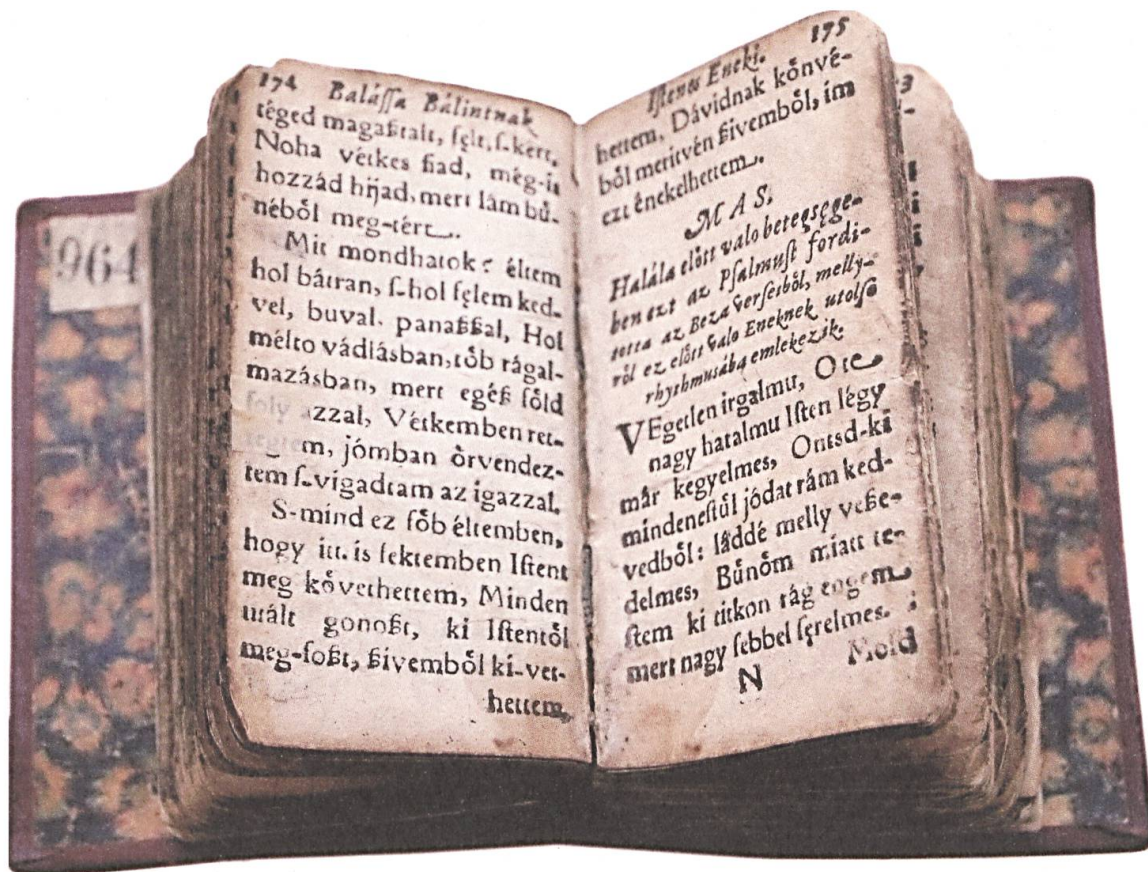 964
174 Balássa Bálintnak
téged magaßtalt, félt, ſ-kért,
Noha vétkes fiad, még-is
hozzád hijad, mert lám bű-
néből meg-tért.
Mit mondhatok? éltem
hol bátran, ſ-hol félem ked-
vel, buval. panaßßal, Hol
mélto vádlásban, tőb rágal-
mazásban, mert egéß főld
foly azzal, Vétkemben ret-
tegtem, jómban őrvendez-
tem ſ-vigadtam az igazzal.
S-mind ez főb éltemben,
hogy itt. is fektemben Iſtent
meg kővethettem, Minden
utált gonoßt, ki Iſtentől
meg-foßt, ßivemből ki-vet-
hettem,
Iſtenes Eneki. 175
hettem, Dávidnak kőnvé-
ből meritvén ßivemből, im
ezt énekelhettem.
MAS.
Halála előtt valo betegſége-
ben ezt az Pſalmuſt fordi-
totta az Beza Verſeiből, melly-
ről ez előtt valo Eneknek utolſo
rhythmusába emlekezik.
VEgetlen irgalmu, O te
nagy hatalmu Iſten légy
már kegyelmes, Ontsd-ki
mindeneſtűl jódat rám ked-
vedből: láddé melly veße-
delmes, Bűnőm miatt te-
ſtem ki titkon rág engem
mert nagy ſebbel ſerelmes.
N Mold